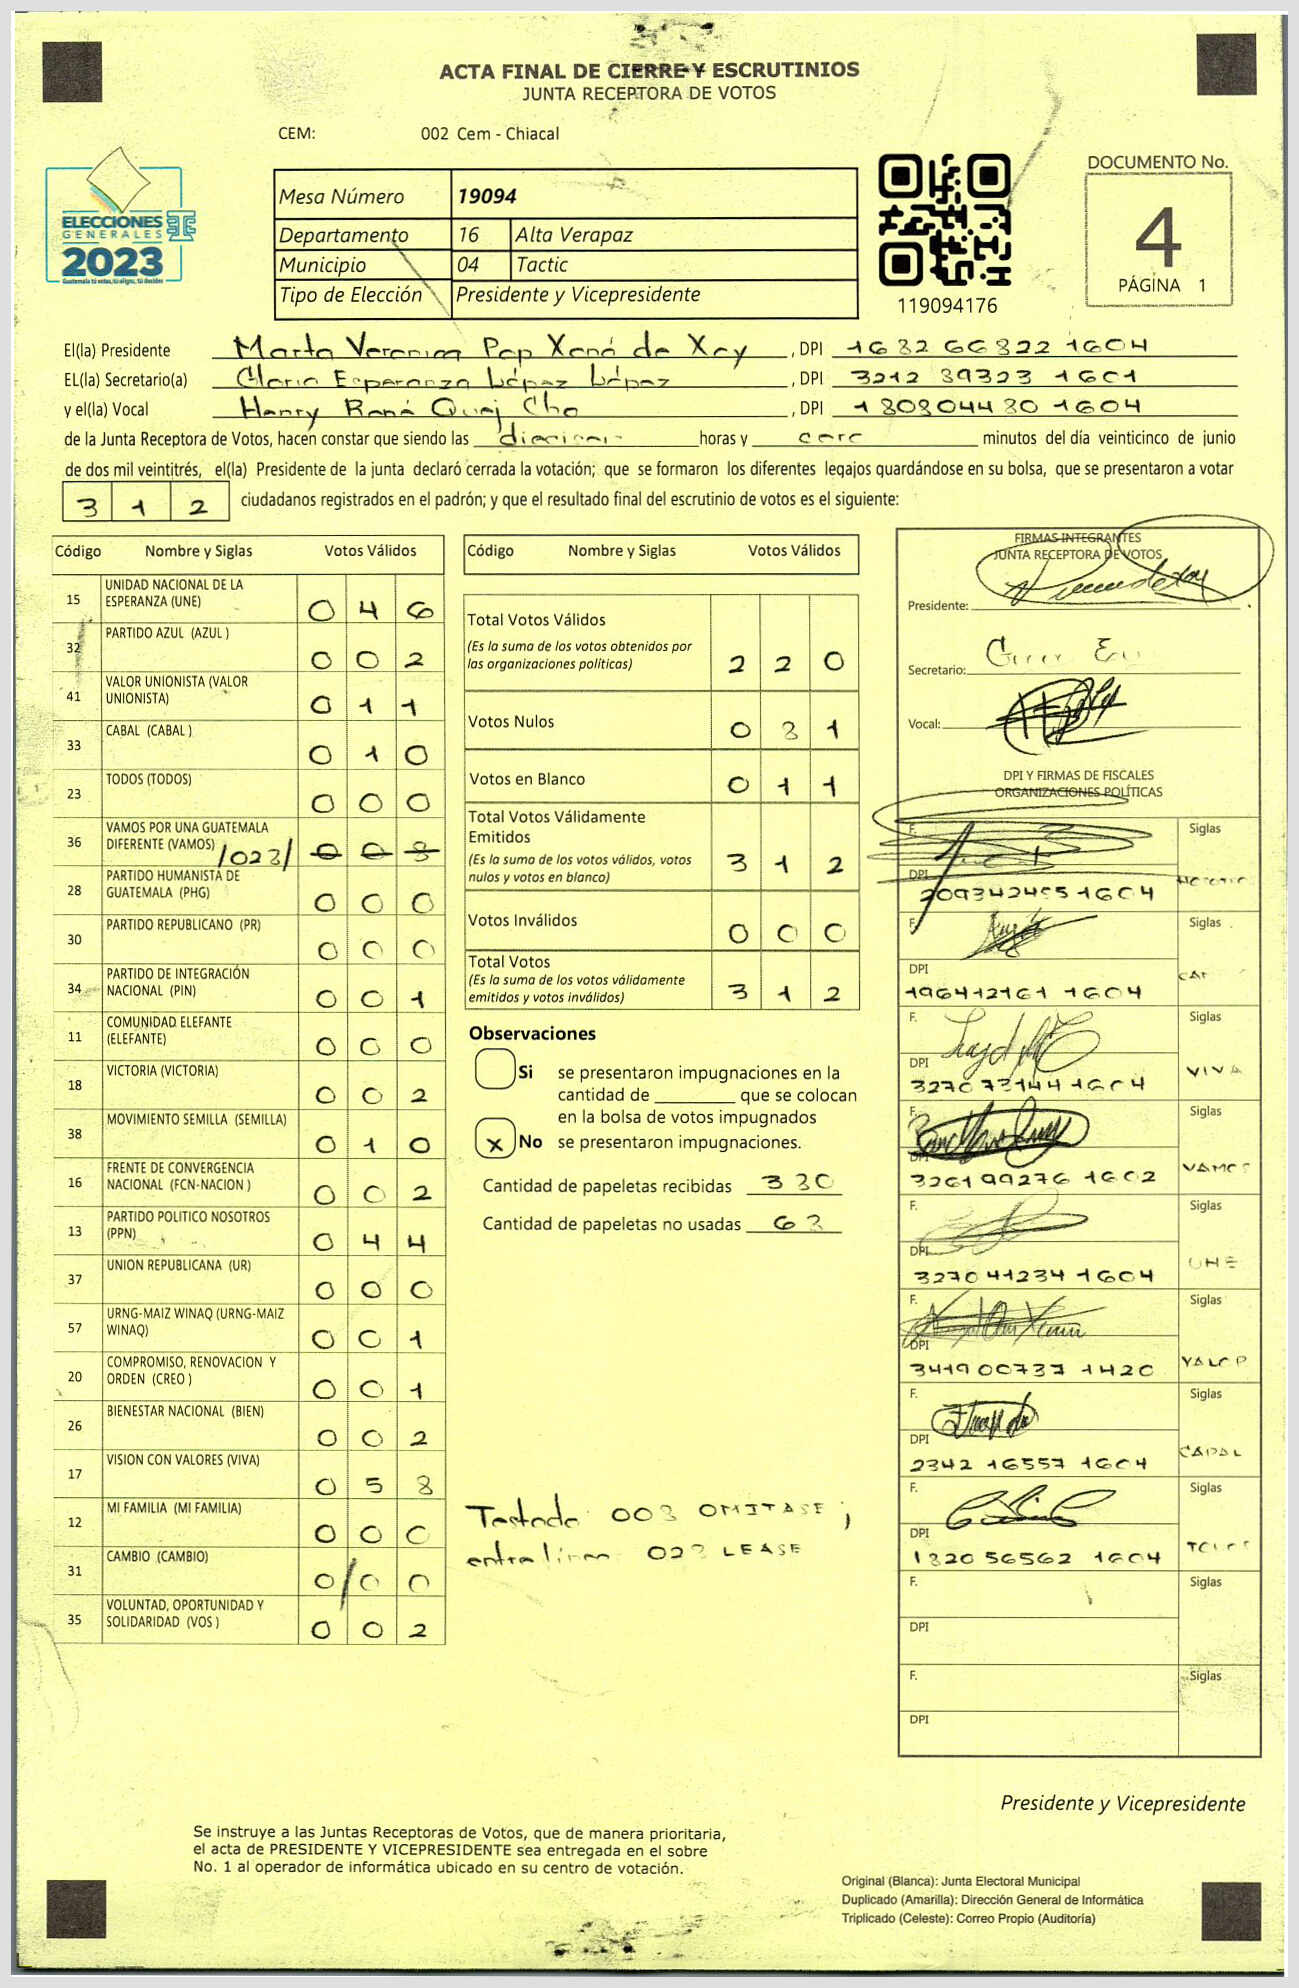 ACTA FINAL DE CIERRE Y ESCRUTINIOS
JUNTA RECEPTORA DE VOTOS
CEM: 002 Cem - Chiacal
ELECCIONES
GENERALES
2023
Guatemala tú votas, tú eliges, tú decides
Mesa Número 19094
Departamento 16 Alta Verapaz
Municipio 04 Tactic
Tipo de Elección Presidente y Vicepresidente
119094176
DOCUMENTO No.
4
PÁGINA 1
El(la) Presidente Marta Veronica Pop Xoná de Xoy , DPI 1632 66322 1604
EL(la) Secretario(a) Gloria Esperanza López López , DPI 3212 39323 1601
y el(la) Vocal Henry René Quej Cho , DPI 1 80804480 1604
de la Junta Receptora de Votos, hacen constar que siendo las dieciseis horas y cero minutos del día veinticinco de junio
de dos mil veintitrés, el(la) Presidente de la junta declaró cerrada la votación; que se formaron los diferentes legajos guardándose en su bolsa, que se presentaron a votar
312 ciudadanos registrados en el padrón; y que el resultado final del escrutinio de votos es el siguiente:
Código Nombre y Siglas Votos Válidos
15 UNIDAD NACIONAL DE LA
ESPERANZA (UNE) 0 4 6
32 PARTIDO AZUL (AZUL ) 0 0 2
41 VALOR UNIONISTA (VALOR
UNIONISTA) 0 1 1
33 CABAL (CABAL ) 0 1 0
23 TODOS (TODOS) 0 0 0
36 VAMOS POR UNA GUATEMALA
DIFERENTE (VAMOS) /023/ 0 0 3
28 PARTIDO HUMANISTA DE
GUATEMALA (PHG) 0 0 0
30 PARTIDO REPUBLICANO (PR) 0 0 0
34 PARTIDO DE INTEGRACIÓN
NACIONAL (PIN) 0 0 1
11 COMUNIDAD ELEFANTE
(ELEFANTE) 0 0 0
18 VICTORIA (VICTORIA) 0 0 2
38 MOVIMIENTO SEMILLA (SEMILLA) 0 1 0
16 FRENTE DE CONVERGENCIA
NACIONAL (FCN-NACION ) 0 0 2
13 PARTIDO POLITICO NOSOTROS
(PPN) 0 4 4
37 UNION REPUBLICANA (UR) 0 0 0
57 URNG-MAIZ WINAQ (URNG-MAIZ
WINAQ) 0 0 1
20 COMPROMISO, RENOVACION Y
ORDEN (CREO ) 0 0 1
26 BIENESTAR NACIONAL (BIEN) 0 0 2
17 VISION CON VALORES (VIVA) 0 5 8
12 MI FAMILIA (MI FAMILIA) 0 0 0
31 CAMBIO (CAMBIO) 0/0 0
35 VOLUNTAD, OPORTUNIDAD Y
SOLIDARIDAD (VOS ) 0 0 2
Código Nombre y Siglas Votos Válidos
Total Votos Válidos
(Es la suma de los votos obtenidos por
las organizaciones políticas) 2 2 0
Votos Nulos 0 8 1
Votos en Blanco 0 1 1
Total Votos Válidamente
Emitidos
(Es la suma de los votos válidos, votos
nulos y votos en blanco) 3 1 2
Votos Inválidos 0 0 0
Total Votos
(Es la suma de los votos válidamente
emitidos y votos inválidos) 3 1 2
Observaciones
Si se presentaron impugnaciones en la
cantidad de ________ que se colocan
en la bolsa de votos impugnados
x No se presentaron impugnaciones.
Cantidad de papeletas recibidas 380
Cantidad de papeletas no usadas 68
Testado: 003 OMITASE;
entre lineas 023 LEASE
FIRMAS INTEGRANTES
JUNTA RECEPTORA DE VOTOS
Presidente:
Secretario:
Vocal:
DPI Y FIRMAS DE FISCALES
ORGANIZACIONES POLÍTICAS
F. Siglas
DPI
209342455 1604
F. Siglas
DPI
196412161 1604
F. Siglas
DPI VIVA
327073144 1604
F. Siglas
DPI VAMOS
326199276 1602
F. Siglas
DPI UNE
327041234 1604
F. Siglas
DPI VALOR
341900737 1420
F. Siglas
DPI CABAL
2342 16557 1604
F. Siglas
DPI TODOS
1320 56562 1604
F. Siglas
DPI
F. Siglas
DPI
Presidente y Vicepresidente
Se instruye a las Juntas Receptoras de Votos, que de manera prioritaria,
el acta de PRESIDENTE Y VICEPRESIDENTE sea entregada en el sobre
No. 1 al operador de informática ubicado en su centro de votación.
Original (Blanca): Junta Electoral Municipal
Duplicado (Amarilla): Dirección General de Informática
Triplicado (Celeste): Correo Propio (Auditoría)